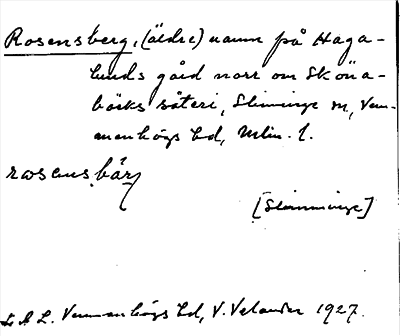 Rosensberg, (äldre) namn på Haga-
lunds gård norr om Sköna-
bäcks säteri, Slimminge sn, Vem-
menhögs hd, Mlm. l.
rosensbärj
[Slimminge]
L. A. L. Vemmenhögs hd, V. Velander 1927.